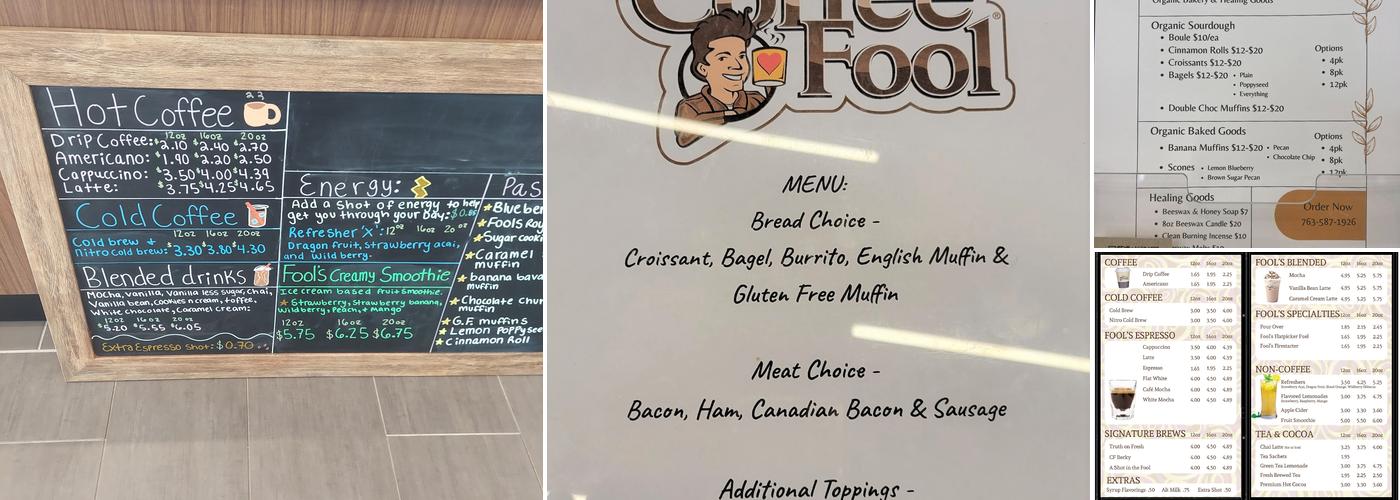 Hot Coffee
12oz 16oz 20oz
Drip Coffee: $2.10 $2.40 $2.70
Americano: $1.90 $2.20 $2.50
Cappuccino: $3.50 $4.00 $4.39
Latte: $3.75 $4.25 $4.65
Cold Coffee
12oz 16oz 20oz
Cold brew +
nitro cold brew: $3.30 $3.80 $4.30
Blended drinks
Mocha, vanilla, vanilla less sugar, chai,
Vanilla bean, cookies n cream, toffee,
White chocolate, caramel creme:
12oz 16oz 20oz
$5.20 $5.55 $6.05
Extra Espresso shot: $0.70
Energy:
Add a shot of energy to help
get you through your day:
Refresher 'x': 12oz 16oz 20oz
Dragon fruit, strawberry acai,
and wild berry.
Fool's Creamy Smoothie
Ice cream based fruit smoothie.
Strawberry, Strawberry banana,
Wildberry, Peach, + Mango
12oz 16oz 20oz
$5.75 $6.25 $6.75
Pas
Blueber
Fools Roy
Sugar cook
Caramel
muffin
banana
Chocolate Chu
muffin
G.F. muffins
Lemon Poppysee
Cinnamon Roll
Coffee
Fool®
MENU:
Bread Choice -
Croissant, Bagel, Burrito, English Muffin &
Gluten Free Muffin
Meat Choice -
Bacon, Ham, Canadian Bacon & Sausage
Additional Toppings -
Organic Bakery & Healing Goods
Organic Sourdough
• Boule $10/ea
• Cinnamon Rolls $12-$20
• Croissants $12-$20
• Bagels $12-$20 • Plain
• Poppyseed
• Everything
• Double Choc Muffins $12-$20
Options
• 4pk
• 8pk
• 12pk
Organic Baked Goods
• Banana Muffins $12-$20 • Pecan
• Chocolate Chip
• Scones • Lemon Blueberry
• Brown Sugar Pecan
Options
• 4pk
• 8pk
• 12pk
Healing Goods
• Beeswax & Honey Soap $7
• 8oz Beeswax Candle $20
• Clean Burning Incense $10
Order Now
763-587-1926
COFFEE 12oz 16oz 20oz
Drip Coffee 1.65 1.95 2.25
Americano 1.65 1.95 2.25
COLD COFFEE 12oz 16oz 20oz
Cold Brew 3.00 3.50 4.00
Nitro Cold Brew 3.00 3.50 4.00
FOOL'S ESPRESSO 12oz 16oz 20oz
Cappuccino 3.50 4.00 4.39
Latte 3.50 4.00 4.39
Espresso 1.65 1.95 2.25
Flat White 4.00 4.50 4.89
Café Mocha 4.00 4.50 4.89
White Mocha 4.00 4.50 4.89
SIGNATURE BREWS 12oz 16oz 20oz
Truth on Fresh 4.00 4.50 4.89
CF Becky 4.00 4.50 4.89
A Shot in the Fool 4.00 4.50 4.89
EXTRAS
Syrup Flavorings .50 Alt Milk .75 Extra Shot .50
FOOL'S BLENDED 12oz 16oz 20oz
Mocha 4.95 5.25 5.75
Vanilla Bean Latte 4.95 5.25 5.75
Caramel Cream Latte 4.95 5.25 5.75
FOOL'S SPECIALTIES 12oz 16oz 20oz
Pour Over 1.85 2.15 2.45
Fool's Flatpicker Fuel 1.65 1.95 2.25
Fool's Firestarter 1.65 1.95 2.25
NON-COFFEE 12oz 16oz 20oz
Refreshers 3.50 4.25 5.25
Flavored Lemonades 3.00 3.75 4.75
Strawberry, Raspberry, Mango
Apple Cider 3.00 3.30 3.60
Fruit Smoothie 5.00 5.50 6.00
TEA & COCOA 12oz 16oz 20oz
Chai Latte 3.25 3.75 4.00
Tea Sachets 1.95
Green Tea Lemonade 3.00 3.75 4.75
Fresh Brewed Tea 1.95 2.25 2.50
Premium Hot Cocoa 3.00 3.30 3.60